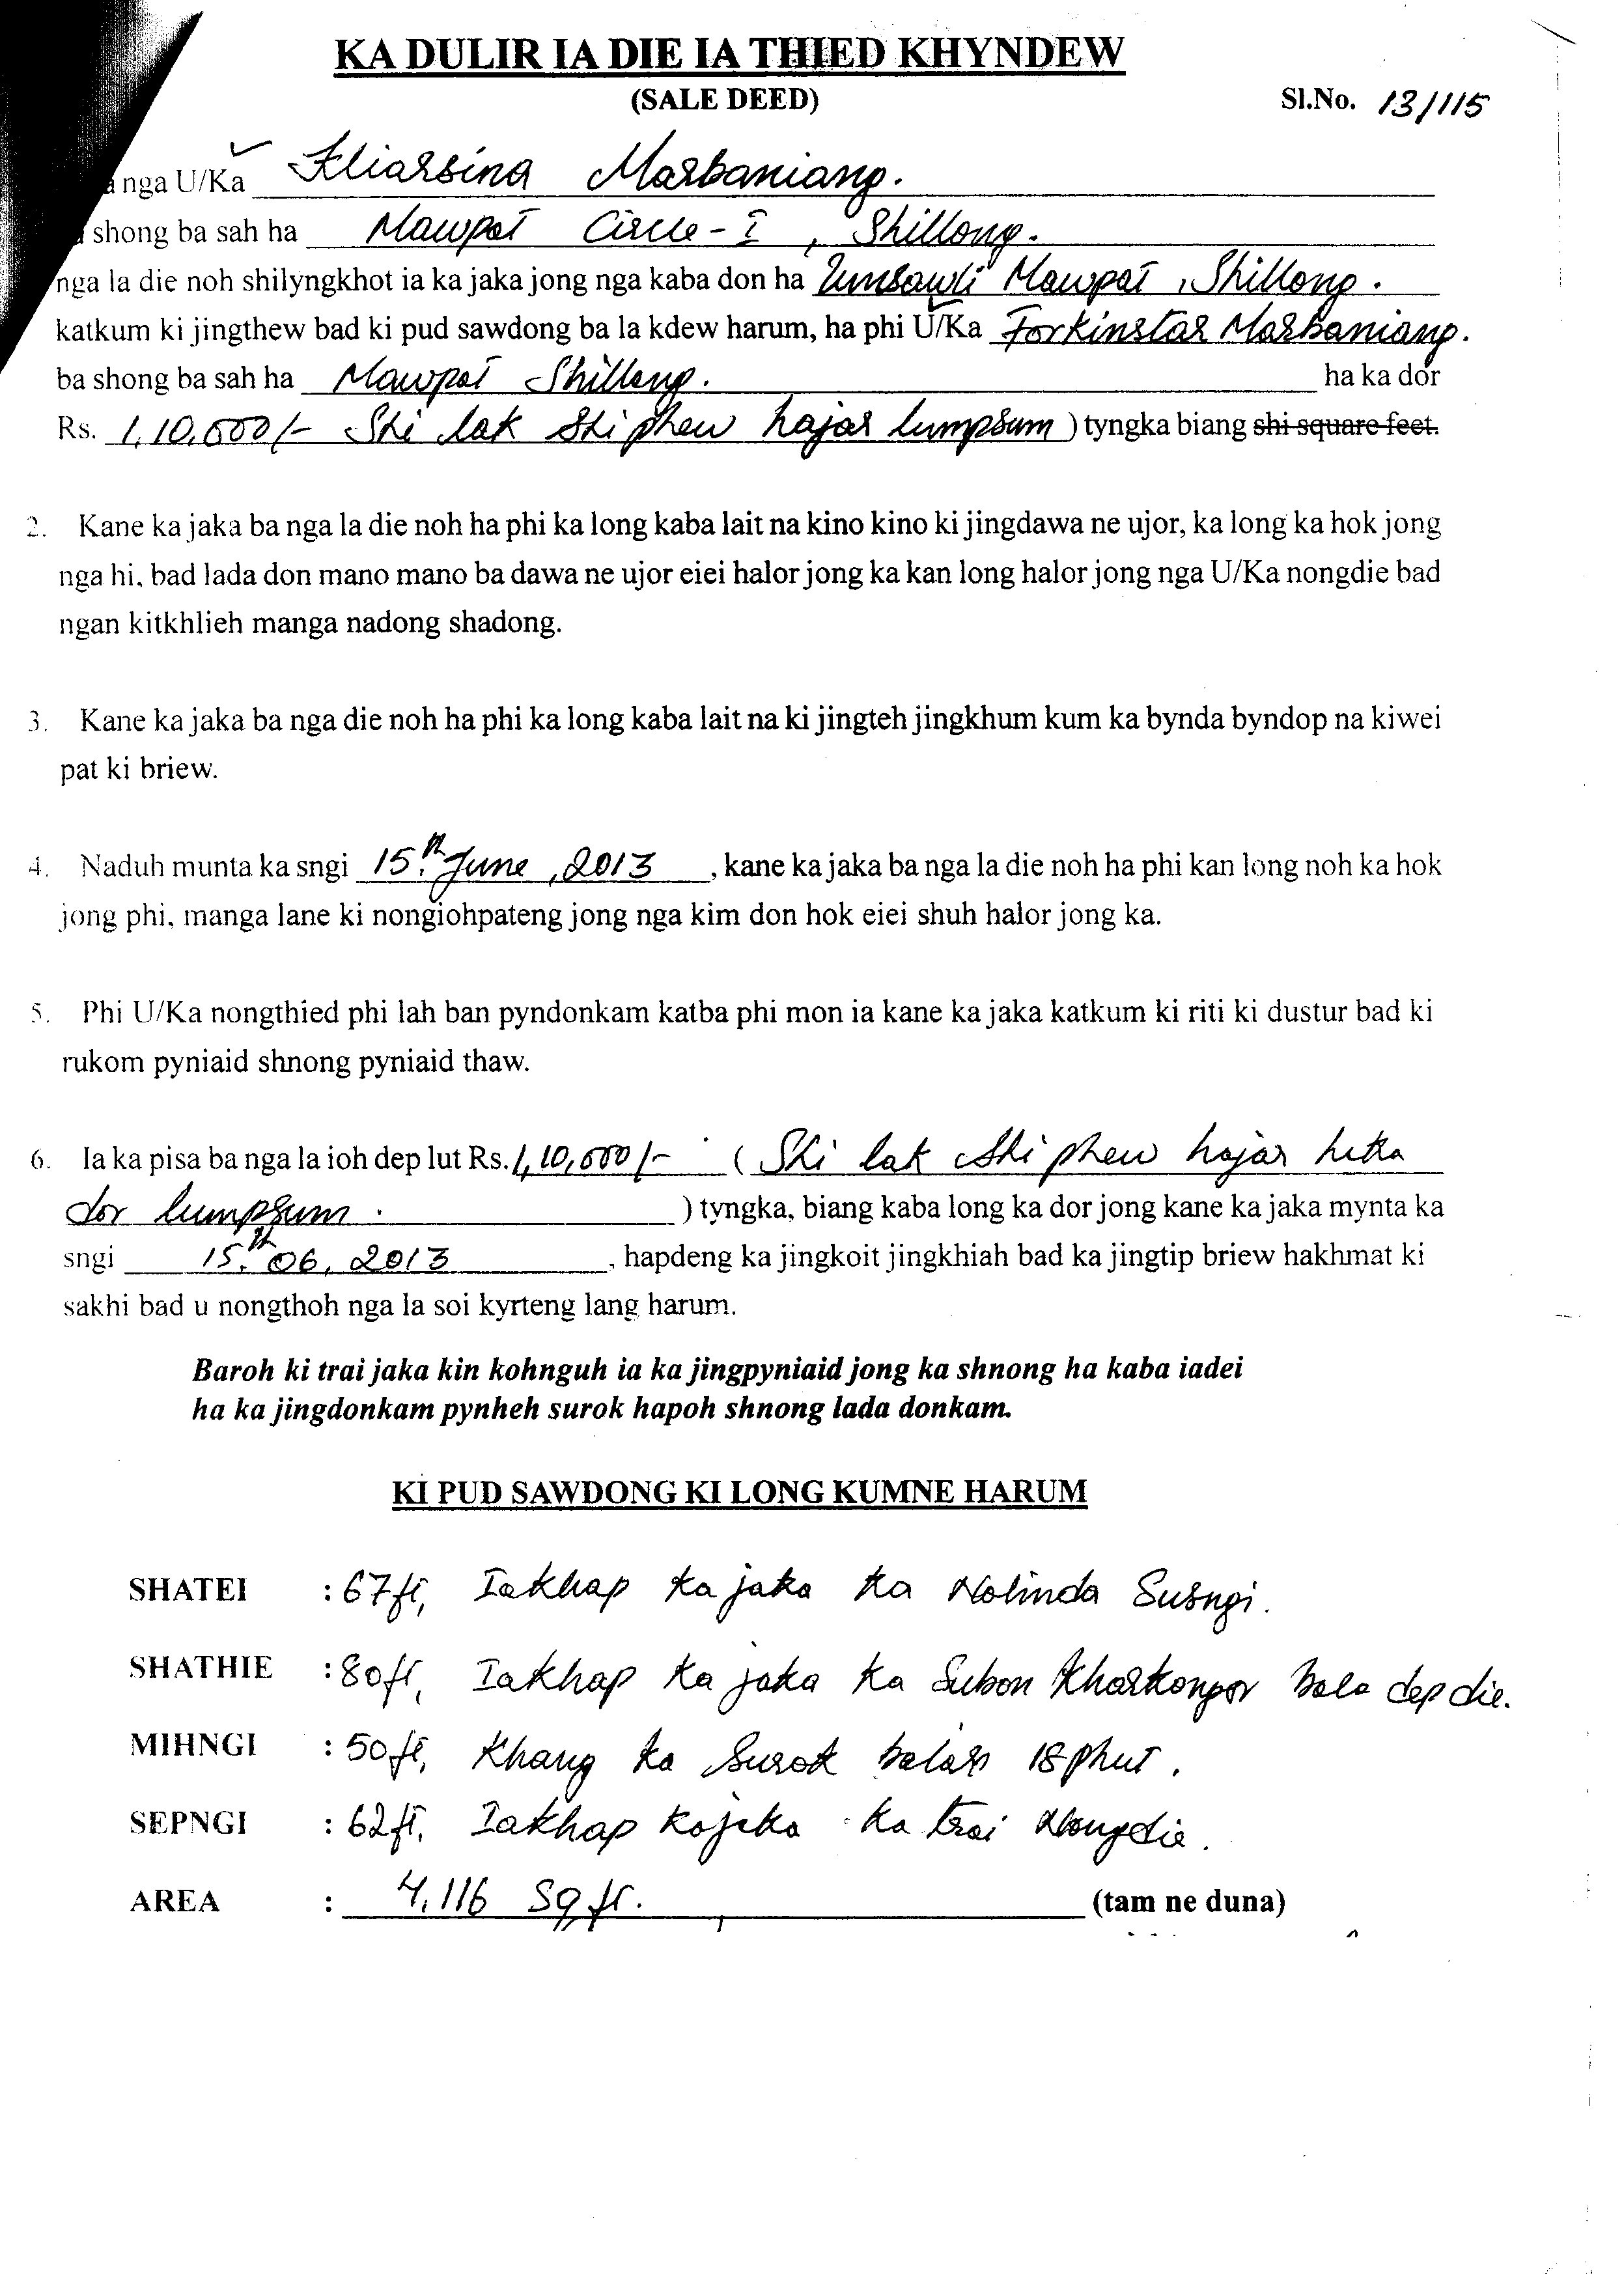 KA DULIR IA DIE IA THIED KHYNDEW
(SALE DEED)
Sl.No. 13/115
nga U/Ka Kliarsina Marbaniang.
shong ba sah ha Mawpat Circle-I, Shillong.
nga la die noh shilyngkhot ia ka jaka jong nga kaba don ha Umsawli Mawpat, Shillong.
katkum ki jingthew bad ki pud sawdong ba la kdew harum, ha phi U/Ka Forkinstar Marbaniang.
ba shong ba sah ha Mawpat Shillong. ha ka dor
Rs. 1,10,000/- Shi lak shi phew hajar lumpsum ) tyngka biang shi square feet.
2. Kane ka jaka ba nga la die noh ha phi ka long kaba lait na kino kino ki jingdawa ne ujor, ka long ka hok jong
nga hi, bad lada don mano mano ba dawa ne ujor eiei halor jong ka kan long halor jong nga U/Ka nongdie bad
ngan kitkhlieh manga nadong shadong.
3. Kane ka jaka ba nga die noh ha phi ka long kaba lait na ki jingteh jingkhum kum ka bynda byndop na kiwei
pat ki briew.
4. Naduh munta ka sngi 15th June, 2013, kane ka jaka ba nga la die noh ha phi kan long noh ka hok
jong phi, manga lane ki nongiohpateng jong nga kim don hok eiei shuh halor jong ka.
5. Phi U/Ka nongthied phi lah ban pyndonkam katba phi mon ia kane ka jaka katkum ki riti ki dustur bad ki
rukom pyniaid shnong pyniaid thaw.
6. Ia ka pisa ba nga la ioh dep lut Rs. 1,10,000/- ( Shi lak shi phew hajar
dor lumpsum. ) tyngka, biang kaba long ka dor jong kane ka jaka mynta ka
sngi 15th. 06, 2013, hapdeng ka jingkoit jingkhiah bad ka jingtip briew hakhmat ki
sakhi bad u nongthoh nga la soi kyrteng lang harum.
Baroh ki trai jaka kin kohnguh ia ka jingpyniaid jong ka shnong ha kaba iadei
ha ka jingdonkam pynheh surok hapoh shnong lada donkam.
KI PUD SAWDONG KI LONG KUMNE HARUM
SHATEI : 67ft, Iakhap ka jaka ka Nolinda Susngi.
SHATHIE : 80ft, Iakhap ka jaka ka Subon Kharkongor bala dep die.
MIHNGI : 50ft, Khang ka Surok 18 phut.
SEPNGI : 62ft, Iakhap ka jaka ka trai Nongdie.
AREA : 4,116 Sq ft. (tam ne duna)